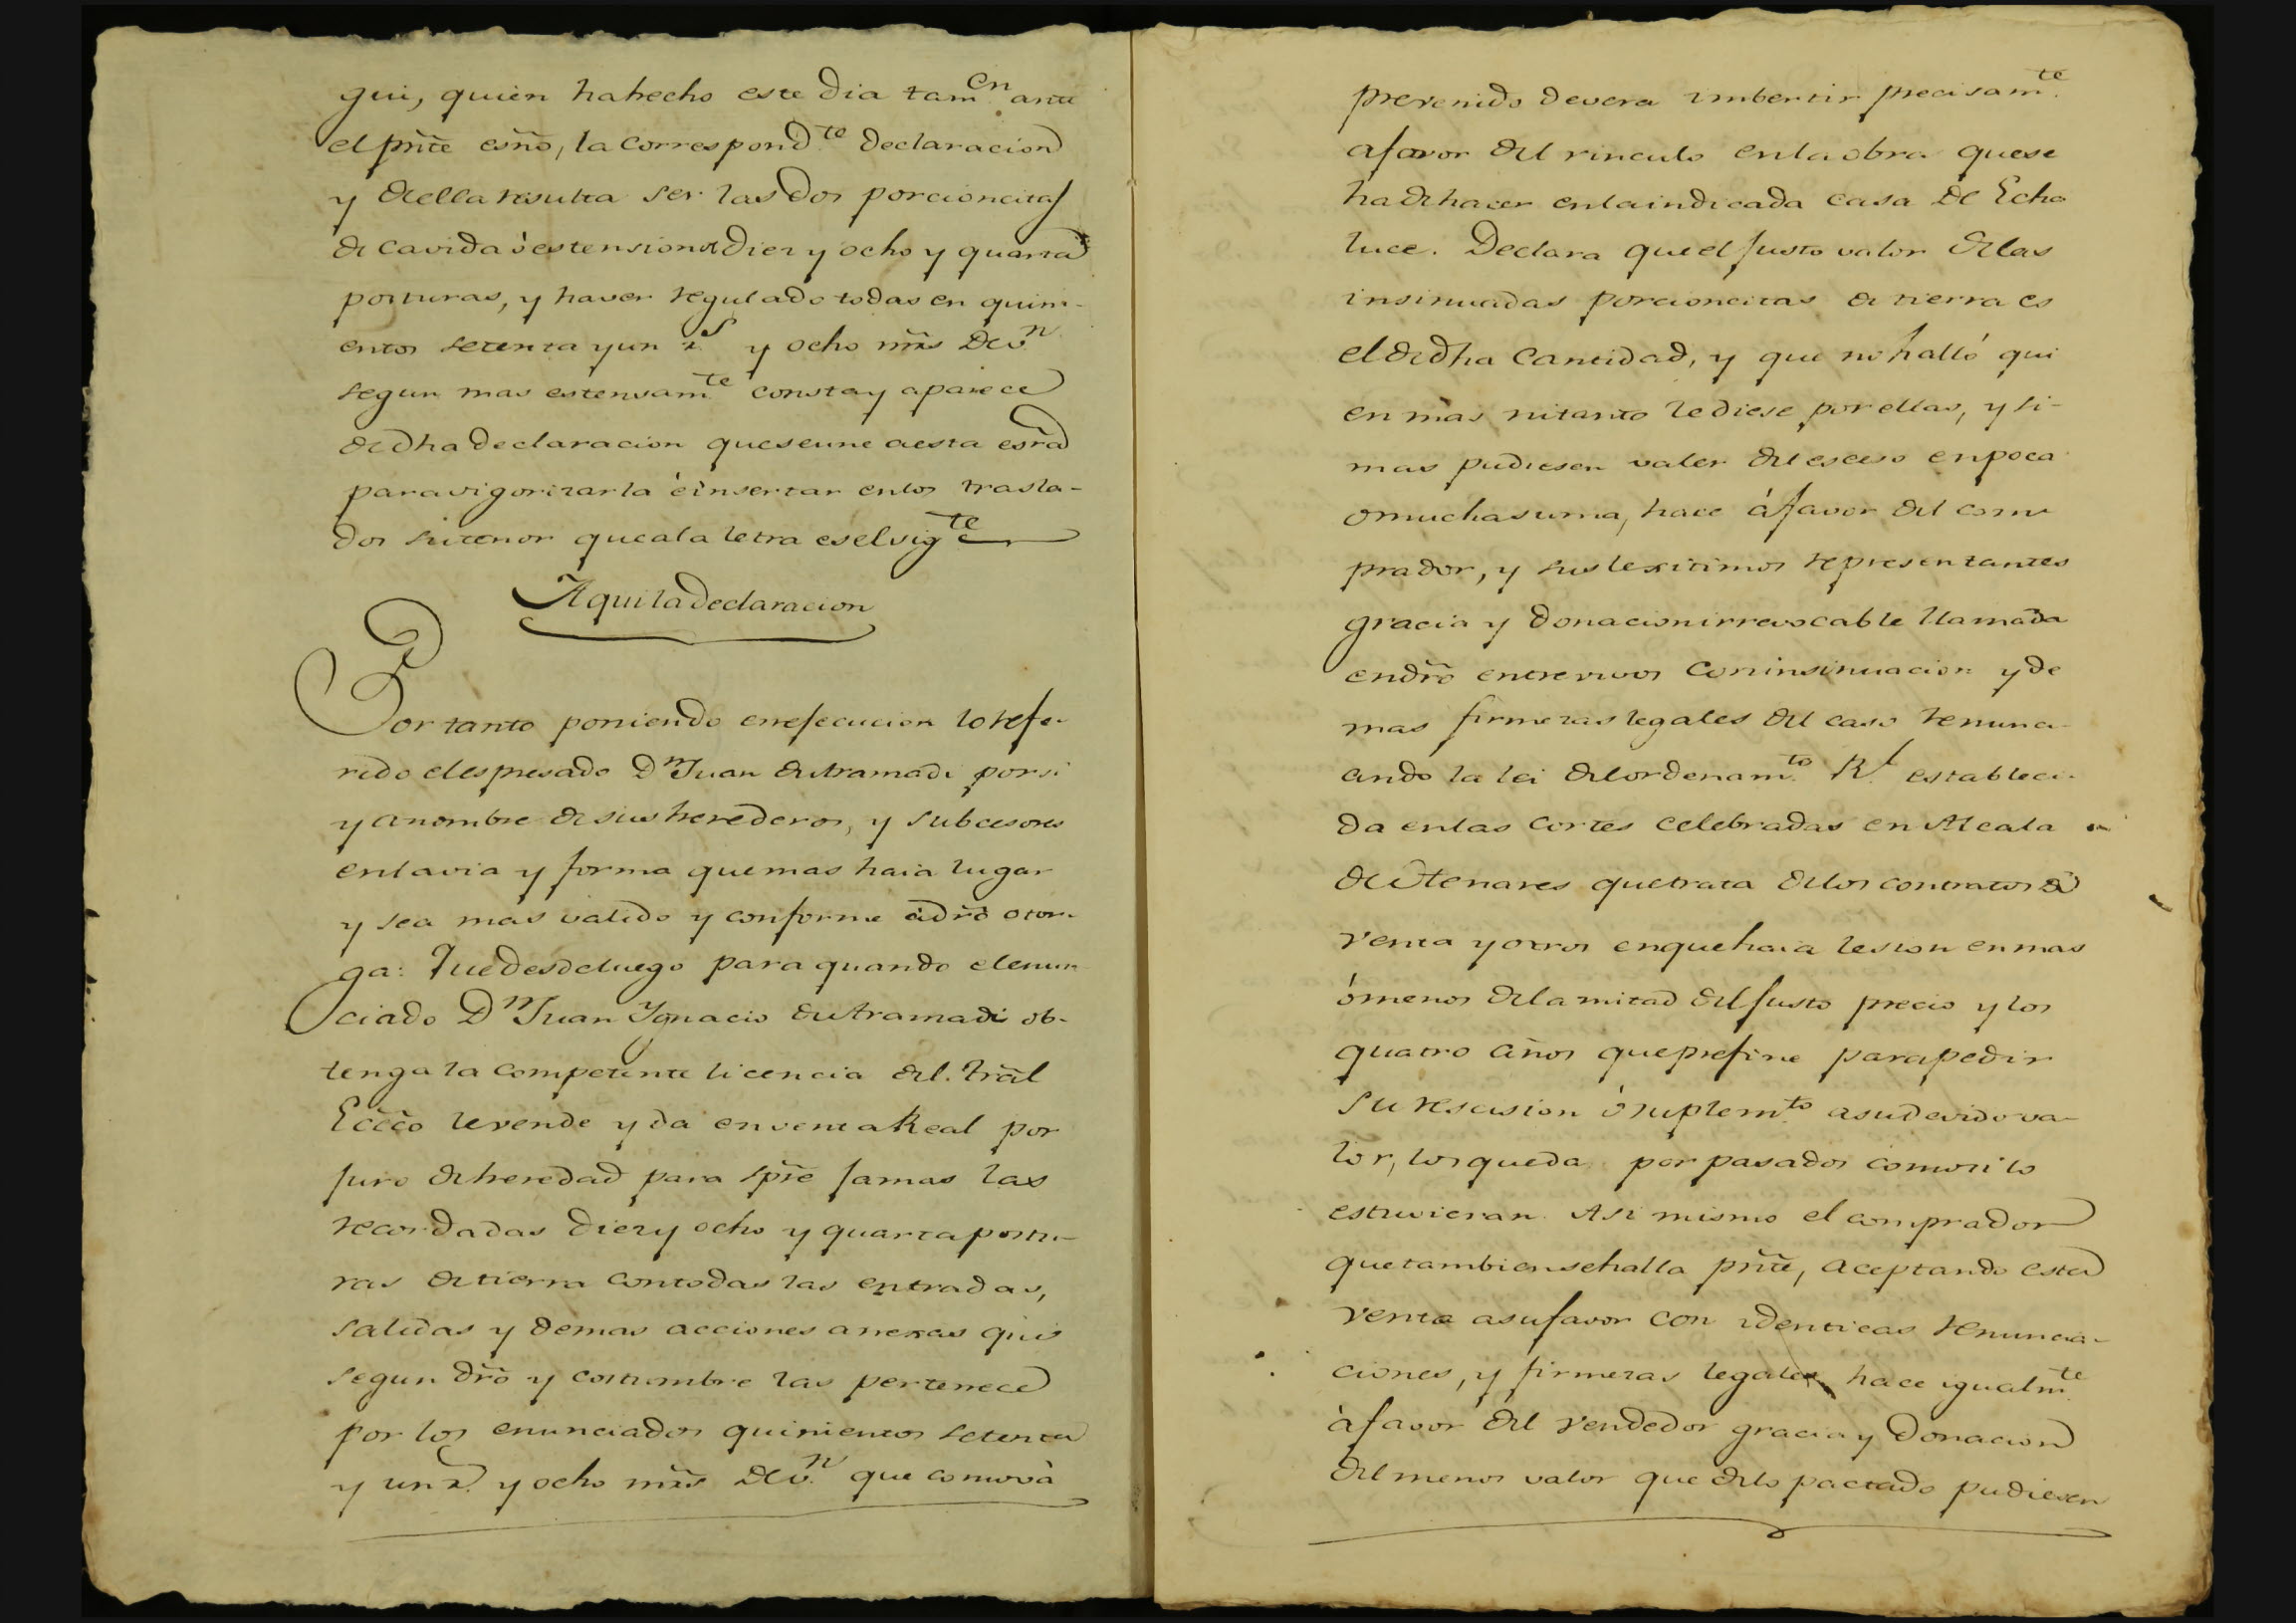 gui, quien ha hecho este Dia tam.en ante
el pñte esño, la Correspond.te Declaracion
y de ella resulta ser las Dos porcioncitas
de cavida ò estension de Diez y ocho y quarta
posturas, y haver regulado todas en quini-
entos setenta y un r.s y ocho mr̃s De v.n
segun mas estensam.te consta y aparece
de dha declaracion que se une a esta esr̃a
para vigorizarla è insertar en los trasla-
dos su tenor que a la letra es el sig.te
Aqui la declaracion
Por tanto poniendo en ejecucion lo refe-
rido el espresado D.n Juan de Aramadi por si
y a nombre de sus herederos, y subcesores
en la via y forma que mas haia lugar
y sea mas valido y conforme à dr̃o otor-
ga: Que desde luego para quando el enun-
ciado D.n Juan Ygnacio de Aramadi ob-
tenga la Competente licencia del Trãl
Ecc̃co le vende y da en venta Real por
juro de heredad para spr̃e jamas las
recordadas Diez y ocho y quarta postu-
ras de tierra con todas las entradas,
salidas y demas acciones anexas que
segun dr̃o y costumbre las pertenece
por los enunciados quinientos setenta
y un r. y ocho mr̃s De v.n que como và
prevenido devera imbertir precisam.te
a favor del vinculo en la obra que se
ha de hacer en la indicada casa de Echa
luce. Declara que el justo valor de las
insinuadas porcioncitas de tierra es
el de dha Cantidad, y que no halló qui
en mas ni tanto le diese por ellas, y si
mas pudiesen valer del esceso en poca
o mucha suma, hace á favor del com
prador, y sus lexitimos representantes
gracia y donacion irrevocable llamada
en dr̃o entre vivos con insinuacion y de
mas firmezas legales del caso renunci-
ando la lei del ordenam.to R.l estableci-
da en las cortes celebradas en Alcala
de Henares que trata de los contratos de
venta y otros en que haia lesion en mas
ó menos de la mitad del justo precio y los
quatro años que prefine para pedir
su rescision ó suplem.to a su devido va-
lor, los que da por pasados como si lo
estuvieran. Asi mismo el comprador
que tambien se halla pñte, aceptando esta
venta a su favor con identicas renuncia-
ciones, y firmezas legales hace igualm.te
à favor del vendedor gracia y Donacion
del menos valor que de lo pactado pudiesen